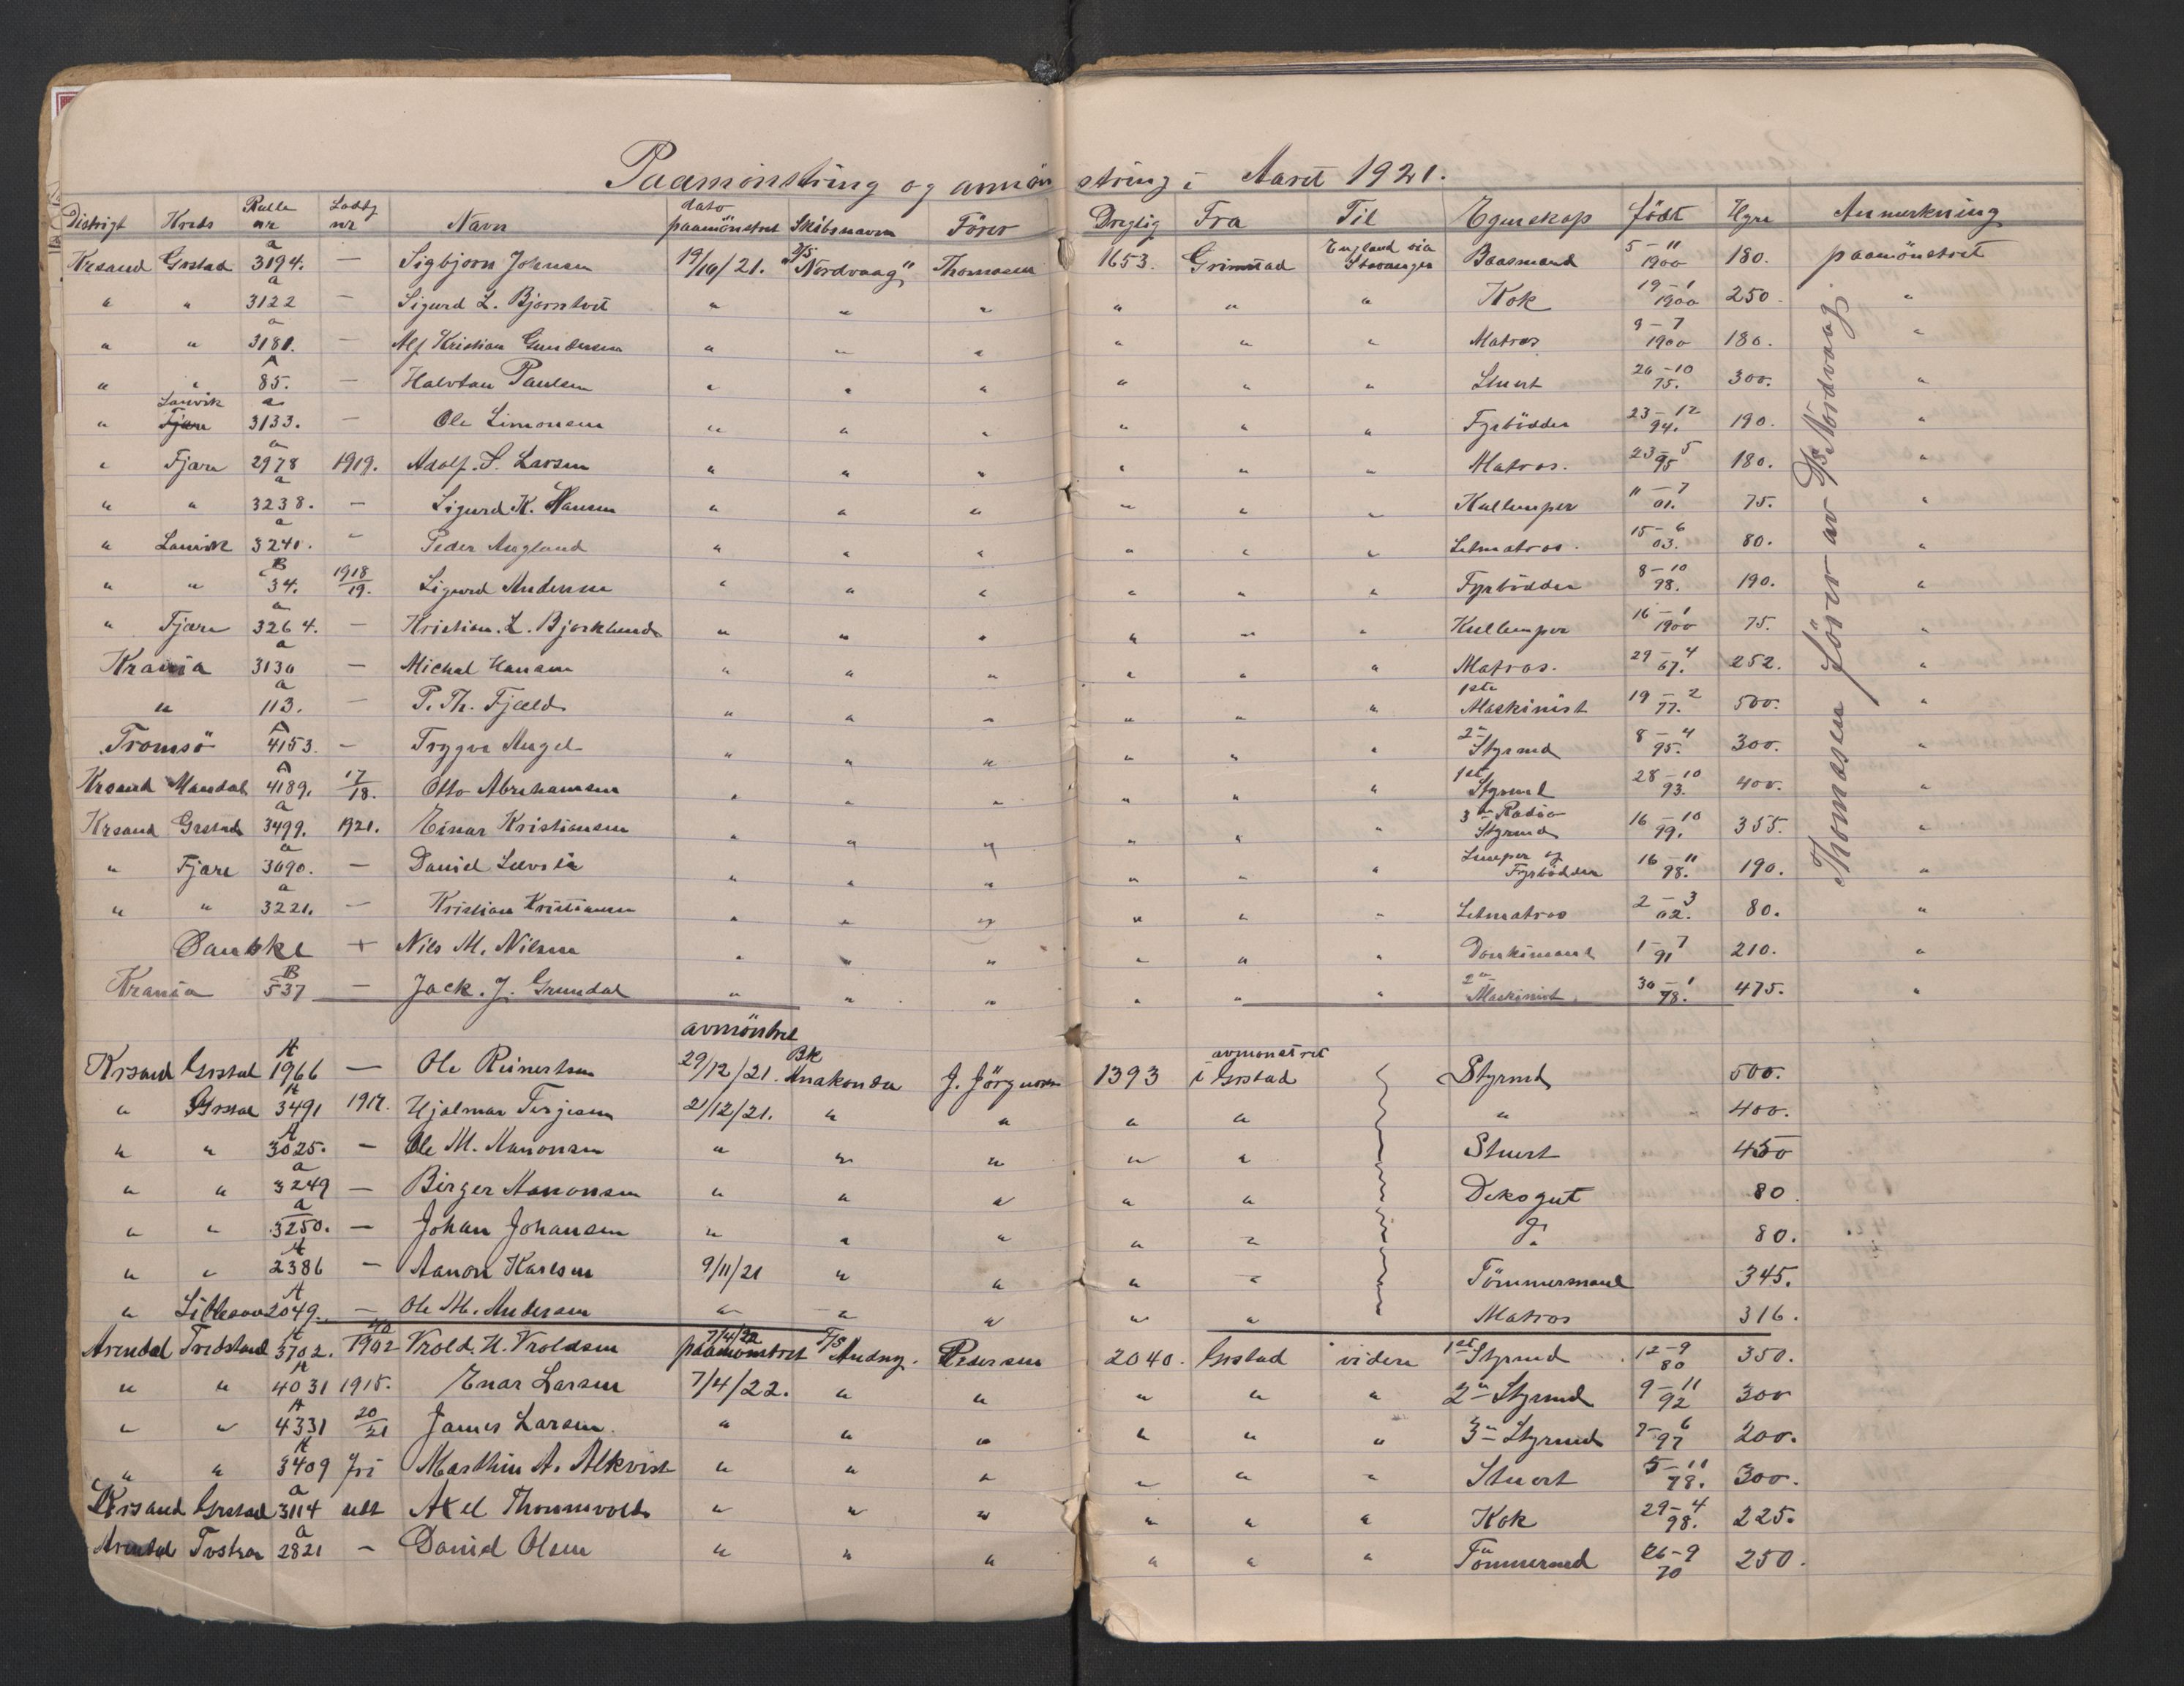 Paamönstring og avmönstring i Aaret 1921.
Distrigt Kreds Rulle nr Lodtg nr Navn dato paamönstret Skibsnavn Förer Dregtig Fra Til Egenskap födt Hyre Anmerkning
Krsand Grstad a 3194. — Sigbjorn Johnsen 19/10/21. D/S "Nordvaag" Thomasen 1653. Grimstad England via Stavanger Baasmand 5-11 1900 180. paamönstret
" " a 3122 — Sigurd L. Bjorntvet " " " " " " Kok 19-1 1900 250. "
" " a 3181. — Alf Kristian Gundersen " " " " " " Matros 9-7 1900 180. "
" " A 85. — Halvtan Paulsen " " " " " " Stuert 26-10 75. 300. "
" Lanvik Fjære a 3133. — Ole Simonsen " " " " " " Fyrbödder 23-12 94. 190. "
" Fjære a 2978 1919. Adolf. S. Larsen " " " " " " Matros. 23-5 95 180. "
" " a 3238. — Sigurd K. Hansen " " " " " " Kullemper 11-7 01. 75. "
" Lanvik a 3241. " Peder Augland " " " " " " Letmatros. 15-6 03. 80. "
" " B 34. 1918/19. Sigurd Andersen " " " " " " Fyrbödder 8-10 98. 190. "
" Fjære a 3264. — Kristian. L. Bjorklund " " " " " " Kullemper 16-1 1900 75. "
Krania a 3130 — Michal Hansen " " " " " " Matros. 29-4 67. 252. "
" a 113. — P. Th. Fjæld " " " " " " 1ste Maskinist 19-2 77. 500. "
Tromsö A 4153. — Trygve Angel " " " " " " 2- Styrmd 8-4 95. 300. "
Krsand Mandal A 4189. 17/18. Otto Abrahamsen " " " " " " 1st Styrmd 28-10 93. 400. "
Krsand Grstad a 3499. 1921. Einar Kristiansen " " " " " " 3- Radio Styrmd 16-10 99. 355. "
" Fjære a 3090. — Daniel " " " " " " Lemper og Fyrbödder 16-11 98. 190. "
" " a 3221. — Kristian Kristiansen " " " " " " Letmatros 2-3 02. 80. "
Danske + Nils M. Nilsen " " " " " " Donkimand 1-7 91 210. "
Krania B 537 — Jack. J. Grundal " " " " " " 2- Maskinist. 30-1 78. 475. "
Thomasen förer av D/S Nordvaag.
Krsand Grstad A 1966 — Ole Reinertsen avmönstret 29/12/21. Bk Anakonda J. Jörgensen 1393 avmonstret i Grstad Styrmd 500.
" Grstad A 3491 1917. Hjalmar Terjesen 2/12/21. " " " " " 400.
" " A 3025. — Ole M. Aanonsen " " " " " Stuert 450
" " a 3249 — Birger Aanonsen " " " " " Deksgut 80
" " a 3250. — Johan Johansen " " " " " Do 80.
" " A 2386 — Aanon Karlsen 9/11/21 " " " " Tömmermand 345.
" Lillesand A 2049. — Ole M. Andersen " " " " " Matros 316.
Arendal Tvedstrand A 3702. 40/1902 Vrold. H. Vroldsen 7/4/22 paamonstret T/S Audny. Pedersen 2040. Grstad videre 1st Styrmd 12-9 80 350.
" " A 4031 1915. Enar Larsen 7/4/22. " " " " " 2- Styrmd 9-11 92 300
" " A 4331 20/21 James Larsen. " " " " " " 3- Styrmd 7-6 97 200.
" " A 3409 fri Marthin A. Alkvist " " " " " " Stuert 5-11 78. 300.
Krsand Grstad a 3114 udt Axel Thommvold " " " " " " Kok 29-4 98. 225.
Arendal Tvstran a 2821 — Daniel Olsen " " " " " " Tömmermd 26-9 70 250.